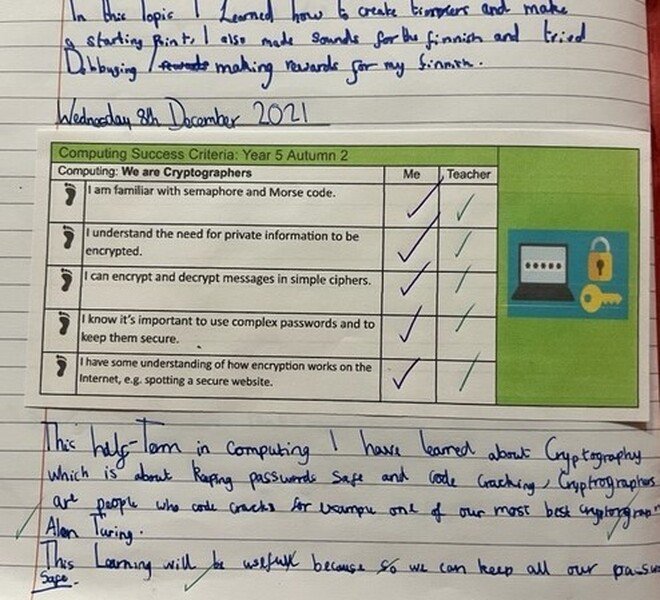 In this Topic I Learned how to create timmers and make
a starting Point, I also made Sounds for the finnish and tried
Debbuging / making rewards for my finnish.
Wednesday 8th December 2021
Computing Success Criteria: Year 5 Autumn 2
Computing: We are Cryptographers Me Teacher
I am familiar with semaphore and Morse code.
I understand the need for private information to be
encrypted.
I can encrypt and decrypt messages in simple ciphers.
I know it's important to use complex passwords and to
keep them secure.
I have some understanding of how encryption works on the
Internet, e.g. spotting a secure website.
This half-Term in computing I have learned about Cryptography
which is about Keping passwords Safe and code Cracking, Cryptrographers
are people who code cracks for example one of our most best
Alan Turing.
This Learning will be usefull because so we can keep all our
Safe.